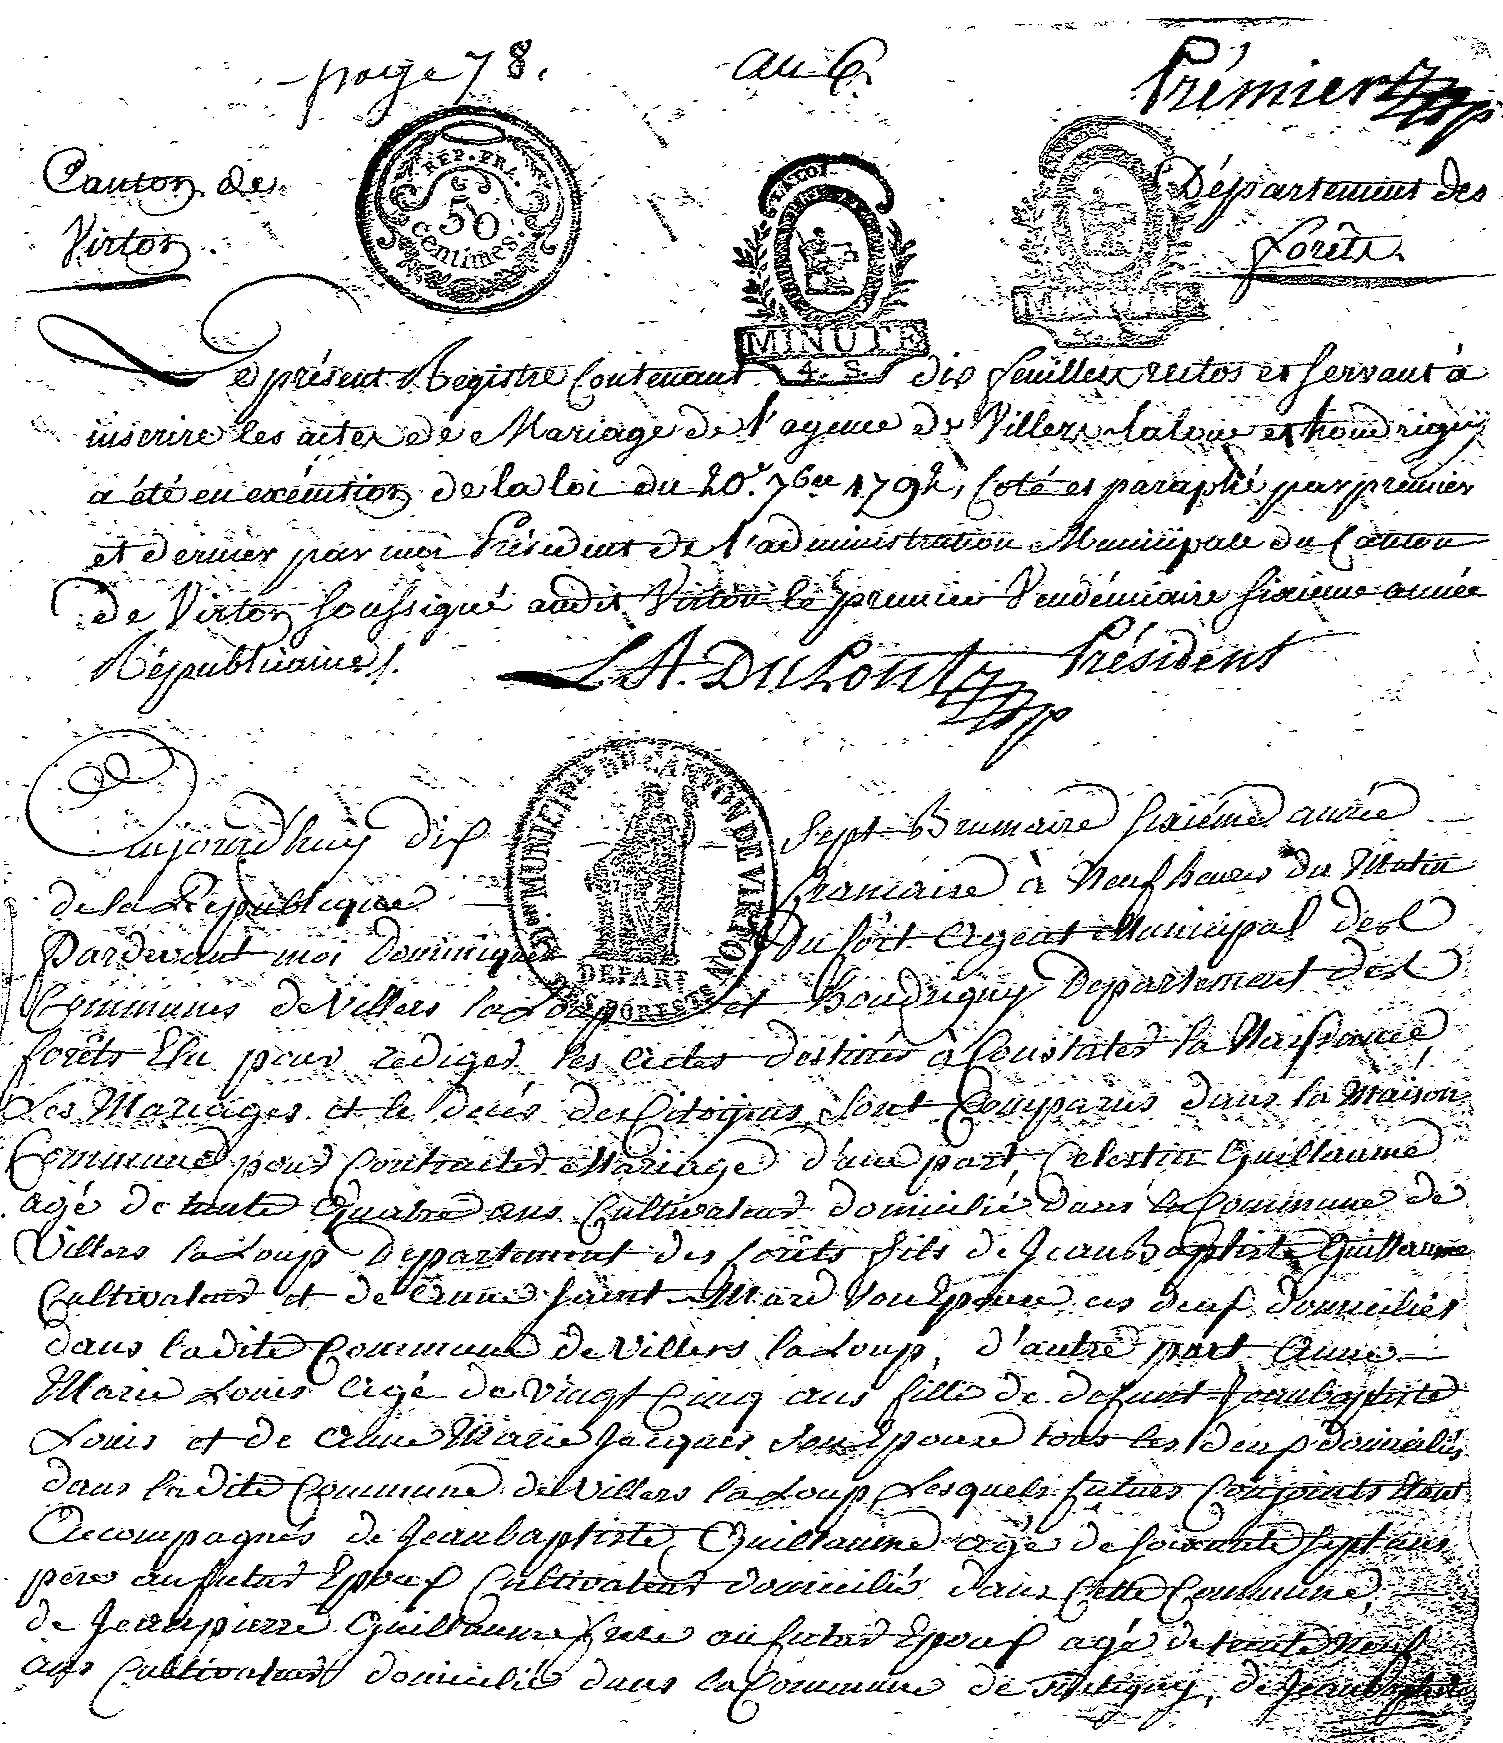 page 78.
an 6.
Prémier
Canton de
Virton.
REP. FRA.
50
centimes.
LA LOI
MINUTE
4. S.
MINUTE
Département des
Forêts.
Le présent Registre Contenant dix feuillets rectos et servant à
inscrire les actes de Mariage de l'agence de Villers laloue et houdrigny
a été en exécution de la loi du 20. 7bre 1792, Coté et paraphé par premier
et dernier par moi Président de l'administration Municipale du Canton
de Virton soussigné audit Virton le premier Vendémiaire sixieme année
Républicaine.
L A. DuLoult Président
CANTON DE VIRTON
DEPART
DES FORETS
Aujourdhuy dix sept Brumaire sixiéme année
de la République francaise à Neuf heures du Matin
Pardevant moi Dominique Dufoit Agent Municipal des
Communes de Villers la Loup et houdrigny Departement des
forêts Elu pour rediger les actes destinés à Constater la Naissance
Les Mariages et le decés des Citoyens sont Comparus dans la Maison
Commune pour Contracter Mariage d'une part Celestin Guillaume
agé de trente Quatre ans Cultivateur domicilié dans la Commune de
Villers la Loup Departement des forêts fils de Jean Baptiste Guillaume
Cultivateur et de Anne Saint Mard son Epouse ces deux domiciliés
dans la dite Commune de Villers la Loup, d'autre part Anne
Marie Louis agé de vingt Cinq ans fille de defunt Jeanbaptiste
Louis et de Anne Marie Jacques son Epouse tous les deux domiciliés
dans la dite Commune de Villers la Loup Lesquels futurs Conjoints
Accompagnés de Jeanbaptiste Guillaume agé de soixante sept ans
pere au futur Epoux Cultivateur domicilié dans Cette Commune,
de Jeanpierre Guillaume frere au futur Epoux agé de trente neuf
ans Cultivateur domicilié dans la Commune de Meitigny, de Jeanbaptiste